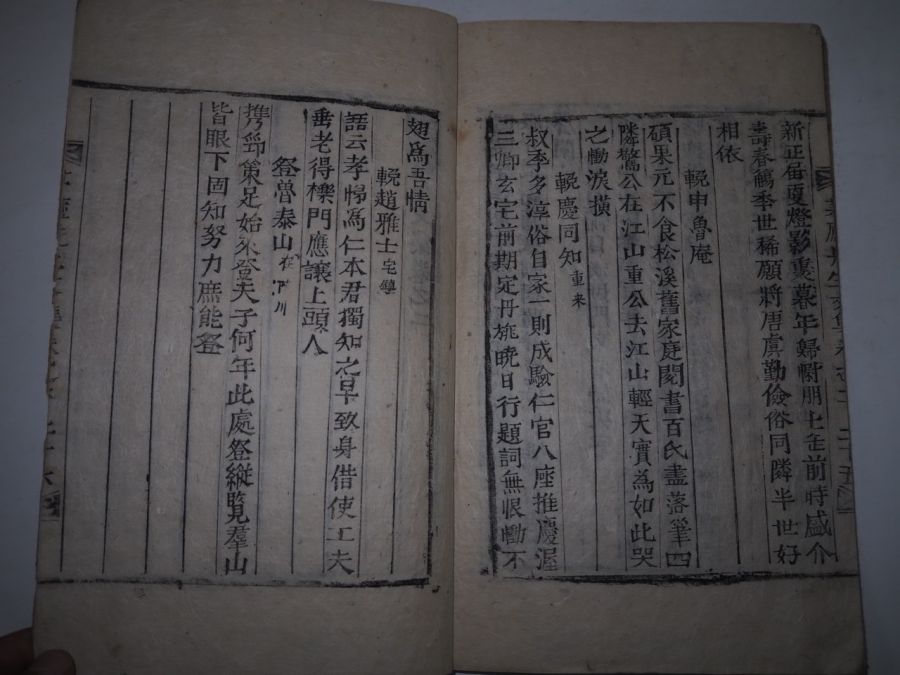 新正每夏燈影裏暮年歸嚮朋七在前時盛介
壽春鶴季世稀願將唐虞勤儉俗同隣半世好
相依
輓申魯庵
碩果元不食松溪舊家庭閱書百氏盡落筆四
隣驚公在江山重公去江山輕天實為如此哭
之慟淚橫
輓慶同知重來
叔季多漓俗自家一則成驗仁官八座推慶渥
三卿玄宅前期定丹旐曉日行題詞無恨慟不
翅爲吾情
輓趙雅士宅鎮
語云孝悌爲仁本君獨知之早致身借使工夫
垂老得櫟門應讓上頭人
登魯泰山在
携筇第足始來登夫子何年此處登縱覽羣山
皆眼下固知努力庶能登